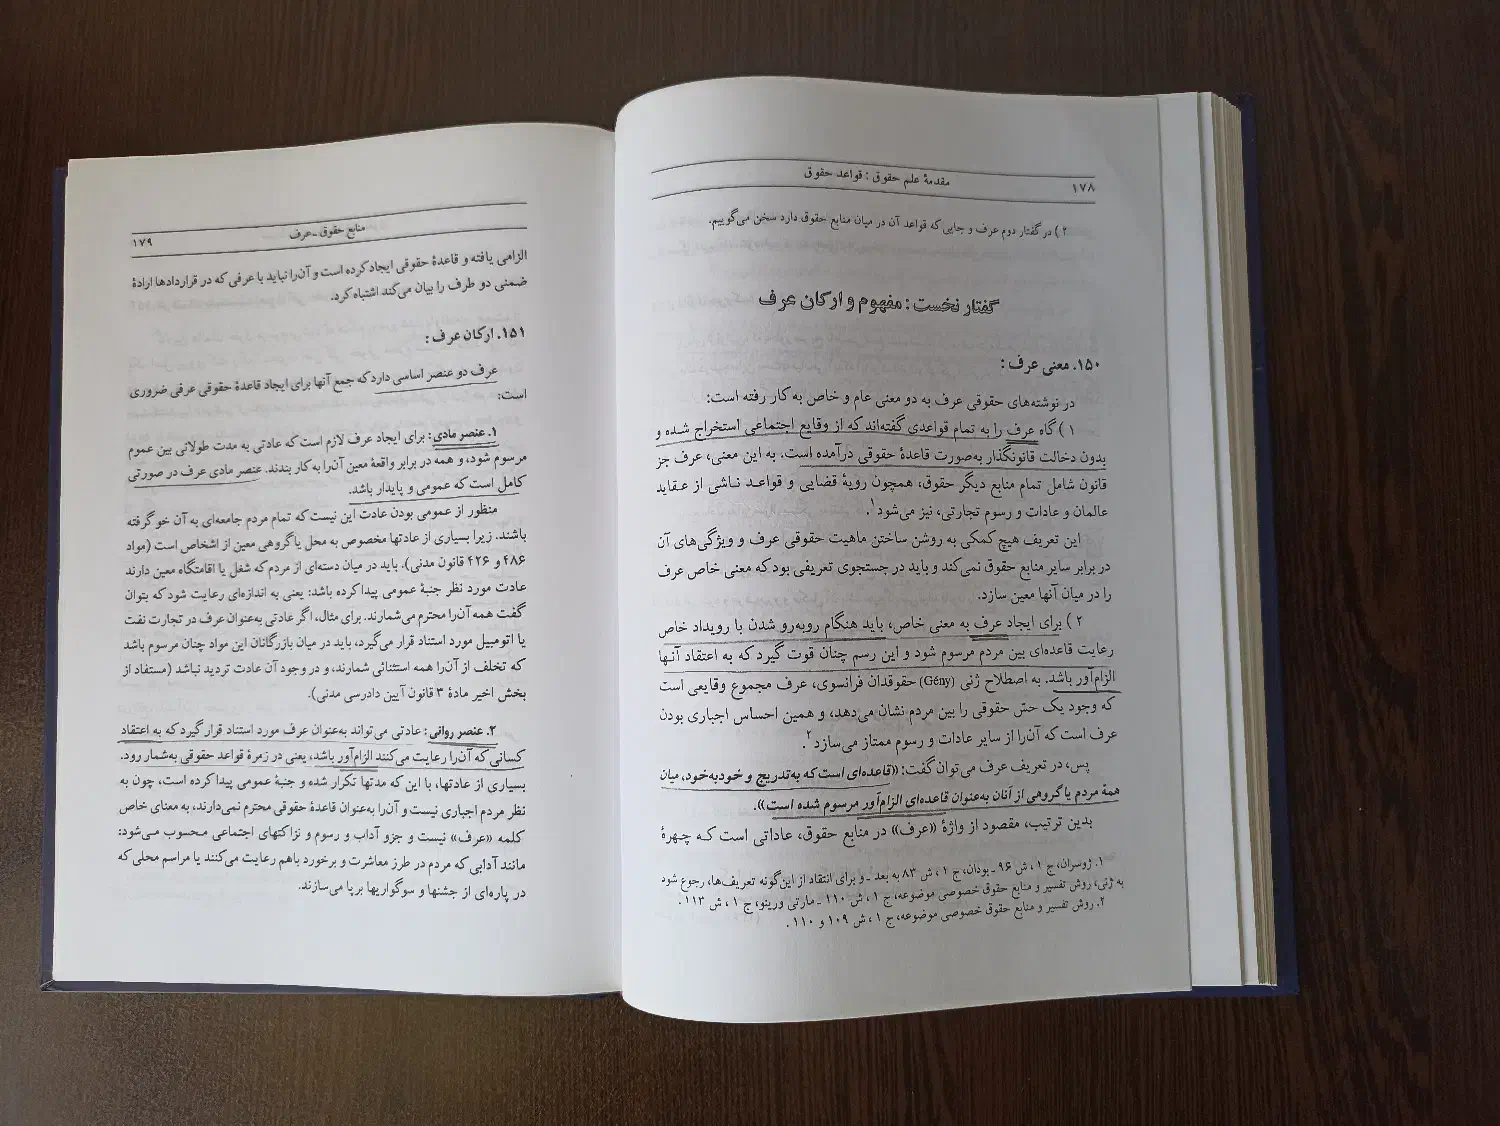 ۱۷۸
مقدمهٔ علم حقوق : قواعد حقوق
۲ ) در گفتار دوم عرف و جایی که قواعد آن در میان منابع حقوق دارد سخن می‌گوییم.
گفتار نخست : مفهوم و ارکان عرف
۱۵۰. معنی عرف :
در نوشته‌های حقوقی عرف به دو معنی عام و خاص به کار رفته است:
۱ ) گاه عرف را به تمام قواعدی گفته‌اند که از وقایع اجتماعی استخراج شده و
بدون دخالت قانونگذار به‌صورت قاعدهٔ حقوقی درآمده است. به این معنی، عرف جز
قانون شامل تمام منابع دیگر حقوق، همچون رویهٔ قضایی و قواعد ناشی از عقاید
عالمان و عادات و رسوم تجارتی، نیز می‌شود۱.
این تعریف هیچ کمکی به روشن ساختن ماهیت حقوقی عرف و ویژگی‌های آن
در برابر سایر منابع حقوق نمی‌کند و باید در جستجوی تعریفی بود که معنی خاص عرف
را در میان آنها معین سازد.
۲ ) برای ایجاد عرف به معنی خاص، باید هنگام روبه‌رو شدن با رویداد خاص
رعایت قاعده‌ای بین مردم مرسوم شود و این رسم چنان قوت گیرد که به اعتقاد آنها
الزام‌آور باشد. به اصطلاح ژنی (Gény) حقوقدان فرانسوی، عرف مجموع وقایعی است
که وجود یک حس حقوقی را بین مردم نشان می‌دهد، و همین احساس اجباری بودن
عرف است که آن‌را از سایر عادات و رسوم ممتاز می‌سازد۲.
پس، در تعریف عرف می‌توان گفت: «قاعده‌ای است که به‌تدریج و خودبه‌خود، میان
همهٔ مردم یا گروهی از آنان به‌عنوان قاعده‌ای الزام‌آور مرسوم شده است».
بدین ترتیب، مقصود از واژهٔ «عرف» در منابع حقوق، عاداتی است که چهرهٔ
۱. ژوسران، ج ۱ ، ش ۹۶ ـ بودان، ج ۱ ، ش ۸۳ به بعد ـ و برای انتقاد از این‌گونه تعریف‌ها، رجوع شود
به ژنی، روش تفسیر و منابع حقوق خصوصی موضوعه، ج ۱ ، ش ۱۱۰ ـ مارتی ورینو، ج ۱ ، ش ۱۱۳ .
۲. روش تفسیر و منابع حقوق خصوصی موضوعه، ج ۱ ، ش ۱۰۹ و ۱۱۰ .
منابع حقوق ـ عرف
۱۷۹
الزامی یافته و قاعدهٔ حقوقی ایجاد کرده است و آن‌را نباید با عرفی که در قراردادها ارادهٔ
ضمنی دو طرف را بیان می‌کند اشتباه کرد.
۱۵۱. ارکان عرف :
عرف دو عنصر اساسی دارد که جمع آنها برای ایجاد قاعدهٔ حقوقی عرفی ضروری
است:
۱. عنصر مادی : برای ایجاد عرف لازم است که عادتی به مدت طولانی بین عموم
مرسوم شود، و همه در برابر واقعهٔ معین آن‌را به کار بندند. عنصر مادی عرف در صورتی
کامل است که عمومی و پایدار باشد.
منظور از عمومی بودن عادت این نیست که تمام مردم جامعه‌ای به آن خو گرفته
باشند. زیرا بسیاری از عادتها مخصوص به محل یا گروهی معین از اشخاص است (مواد
۴۸۶ و ۴۲۶ قانون مدنی). باید در میان دسته‌ای از مردم که شغل یا اقامتگاه معین دارند
عادت مورد نظر جنبهٔ عمومی پیدا کرده باشد: یعنی به اندازه‌ای رعایت شود که بتوان
گفت همه آن‌را محترم می‌شمارند. برای مثال، اگر عادتی به‌عنوان عرف در تجارت نفت
یا اتومبیل مورد استناد قرار می‌گیرد، باید در میان بازرگانان این مواد چنان مرسوم باشد
که تخلف از آن‌را همه استثنائی شمارند، و در وجود آن عادت تردید نباشد (مستفاد از
بخش اخیر مادهٔ ۳ قانون آیین دادرسی مدنی).
۲. عنصر روانی : عادتی می‌تواند به‌عنوان عرف مورد استناد قرار گیرد که به اعتقاد
کسانی که آن‌را رعایت می‌کنند الزام‌آور باشد، یعنی در زمرهٔ قواعد حقوقی به‌شمار رود.
بسیاری از عادتها، با این که مدتها تکرار شده و جنبهٔ عمومی پیدا کرده است، چون به
نظر مردم اجباری نیست و آن‌را به‌عنوان قاعدهٔ حقوقی محترم نمی‌دارند، به معنای خاص
کلمه «عرف» نیست و جزو آداب و رسوم و نزاکتهای اجتماعی محسوب می‌شود:
مانند آدابی که مردم در طرز معاشرت و برخورد باهم رعایت می‌کنند یا مراسم محلی که
در پاره‌ای از جشنها و سوگواریها برپا می‌سازند.